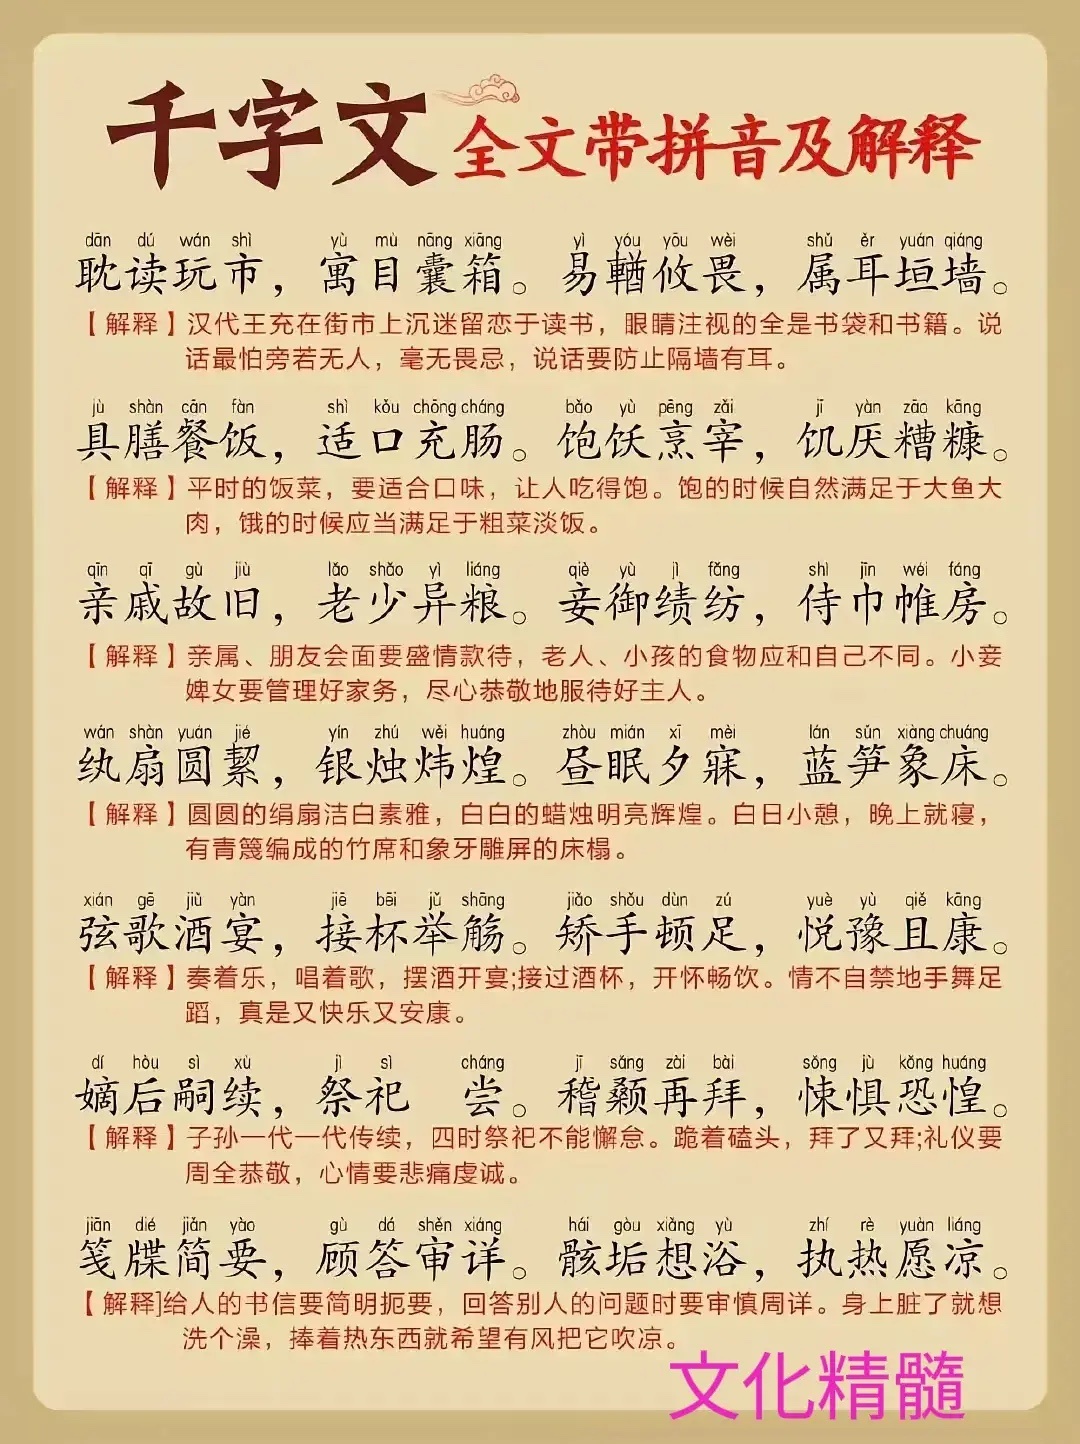 千字文 全文带拼音及解释
dān dú wán shì yù mù náng xiāng yì yóu yōu wèi shǔ ěr yuán qiáng
耽读玩市，寓目囊箱。易輶攸畏，属耳垣墙。
【解释】汉代王充在街市上沉迷留恋于读书，眼睛注视的全是书袋和书籍。说
话最怕旁若无人，毫无畏忌，说话要防止隔墙有耳。
jù shàn cān fàn shì kǒu chōng cháng bǎo yù pēng zǎi jī yàn zāo kāng
具膳餐饭，适口充肠。饱饫烹宰，饥厌糟糠。
【解释】平时的饭菜，要适合口味，让人吃得饱。饱的时候自然满足于大鱼大
肉，饿的时候应当满足于粗菜淡饭。
qīn qī gù jiù lǎo shǎo yì liáng qiè yù jì fǎng shì jīn wéi fáng
亲戚故旧，老少异粮。妾御绩纺，侍巾帷房。
【解释】亲属、朋友会面要盛情款待，老人、小孩的食物应和自己不同。小妾
婢女要管理好家务，尽心恭敬地服待好主人。
wán shàn yuán jié yín zhú wěi huáng zhòu mián xī mèi lán sǔn xiàng chuáng
纨扇圆絜，银烛炜煌。昼眠夕寐，蓝笋象床。
【解释】圆圆的绢扇洁白素雅，白白的蜡烛明亮辉煌。白日小憩，晚上就寝，
有青篾编成的竹席和象牙雕屏的床榻。
xián gē jiǔ yàn jiē bēi jǔ shāng jiǎo shǒu dùn zú yuè yù qiě kāng
弦歌酒宴，接杯举觞。矫手顿足，悦豫且康。
【解释】奏着乐，唱着歌，摆酒开宴;接过酒杯，开怀畅饮。情不自禁地手舞足
蹈，真是又快乐又安康。
dí hòu sì xù jì sì cháng jī sǎng zài bài sǒng jù kǒng huáng
嫡后嗣续，祭祀 尝。稽颡再拜，悚惧恐惶。
【解释】子孙一代一代传续，四时祭祀不能懈怠。跪着磕头，拜了又拜;礼仪要
周全恭敬，心情要悲痛虔诚。
jiān dié jiǎn yào gù dá shěn xiáng hái gòu xiǎng yù zhí rè yuàn liáng
笺牒简要，顾答审详。骸垢想浴，执热愿凉。
【解释]给人的书信要简明扼要，回答别人的问题时要审慎周详。身上脏了就想
洗个澡，捧着热东西就希望有风把它吹凉。
文化精髓